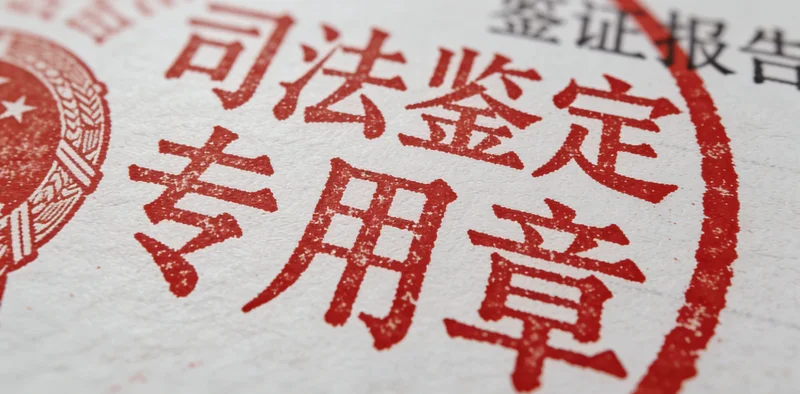 鉴证报告
司法鉴定
专用章